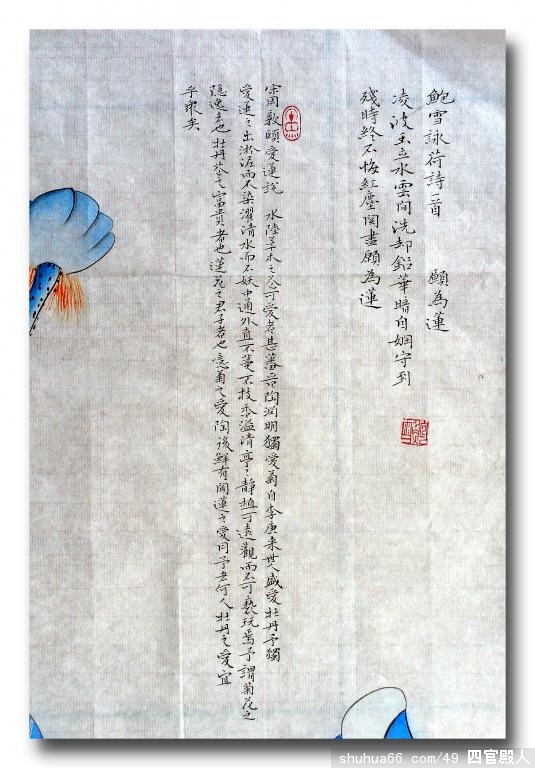 鮑雪詠荷詩一首 願為蓮
凌波玉立水雲間洗却鉛華暗自嫻守到
殘時終不悔紅塵閱盡願為蓮
宋周敦頤愛蓮說 水陸草木之花可愛者甚蕃晉陶淵明獨愛菊自李唐来世人盛愛牡丹予獨
愛蓮之出淤泥而不染濯清水而不妖中通外直不蔓不枝香溢清亭々静植可遠觀而不可褻玩焉予謂菊花之
隱逸者也牡丹花之富貴者也蓮花之君子者也意菊之愛陶後鮮有聞蓮之愛同予者何人牡丹之愛宜
乎衆矣
shuhua66.com/49 四官殿人